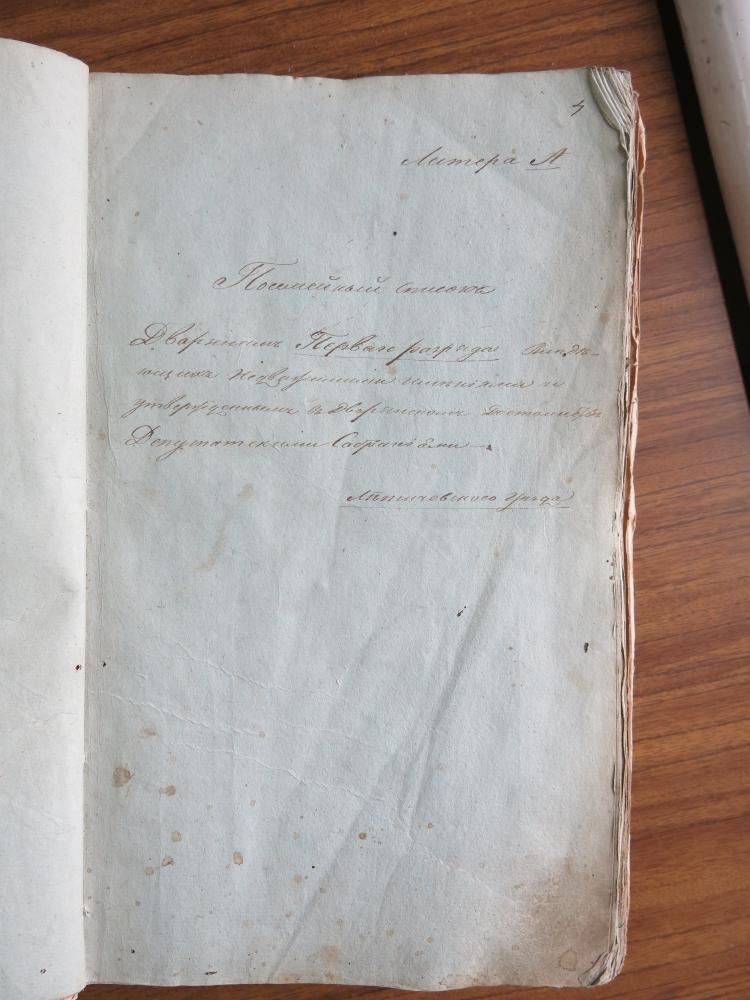 4
Литера А
Посемейный списокъ
Дворянамъ Перваго разряда владѣ-
ющихъ недвижимыми имѣніями и
утвержденнымъ въ Дворянскомъ достоинствѣ
Депутатскими Собраніями
Летичевского уѣзда